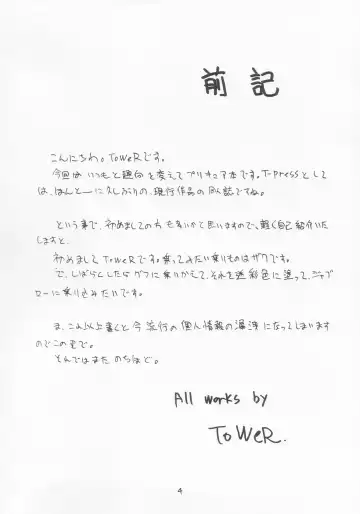 前記
こんにちわ。ToWeRです。
今回は いつもと趣向を変えてプリキュア本です。T-pressとして
は、ほんとーに久しぶりの、現行作品の同人誌ですね。
という事で、初めましての方も多いかと思いますので、軽く自己紹介いた
しますと、
初めまして ToWeRです。乗ってみたい乗りものはザクです。
で、しばらくしたらグフに乗りかえて、それを迷彩色に塗って、ジャブ
ローに乗り込みたいです。
ま、これ以上書くと今流行の個人情報の漏洩になってしまいます
のでこの辺で。
そんではまた のちほど。
All works by
ToWeR.
4